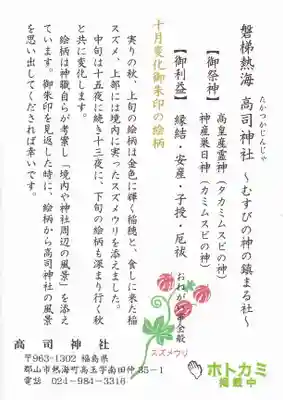 磐梯熱海 高司神社 ～むすびの神の鎮まる社～
たかつかじんじゃ
【御祭神】 高皇産霊神（タカミムスビの神）
神産巣日神（カミムスビの神）
【御利益】 縁結・安産・子授・厄祓
おねがい事全般
十月変化御朱印の絵柄
実りの秋、上旬の絵柄は金色に輝く稲穂と、食しに来た稲
スズメ、上部には境内に実ったスズメウリを添えました。
中旬は十五夜に続き十三夜に、下旬の絵柄も深まり行く秋
と共に変化します。
絵柄は神職自らが考案し「境内や神社周辺の風景」を添え
ています。御朱印を見返した時に、絵柄から高司神社の風景
を思い出してくだされば幸いです。
スズメウリ
高司神社
〒963-1302 福島県
郡山市熱海町高玉字南田仲35-1
電話 024-984-3316
ホトカミ
掲載中